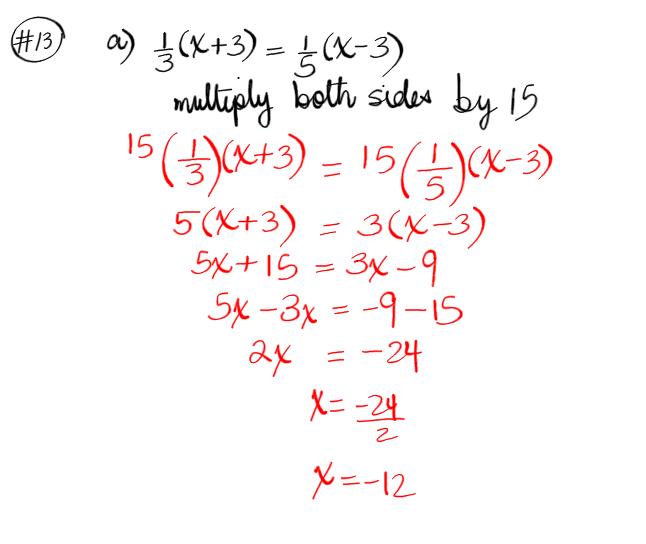 #13 a) 1/3(x+3) = 1/5(x-3)
multiply both sides by 15
15(1/3)(x+3) = 15(1/5)(x-3)
5(x+3) = 3(x-3)
5x+15 = 3x-9
5x-3x = -9-15
2x = -24
x = -24/2
x = -12